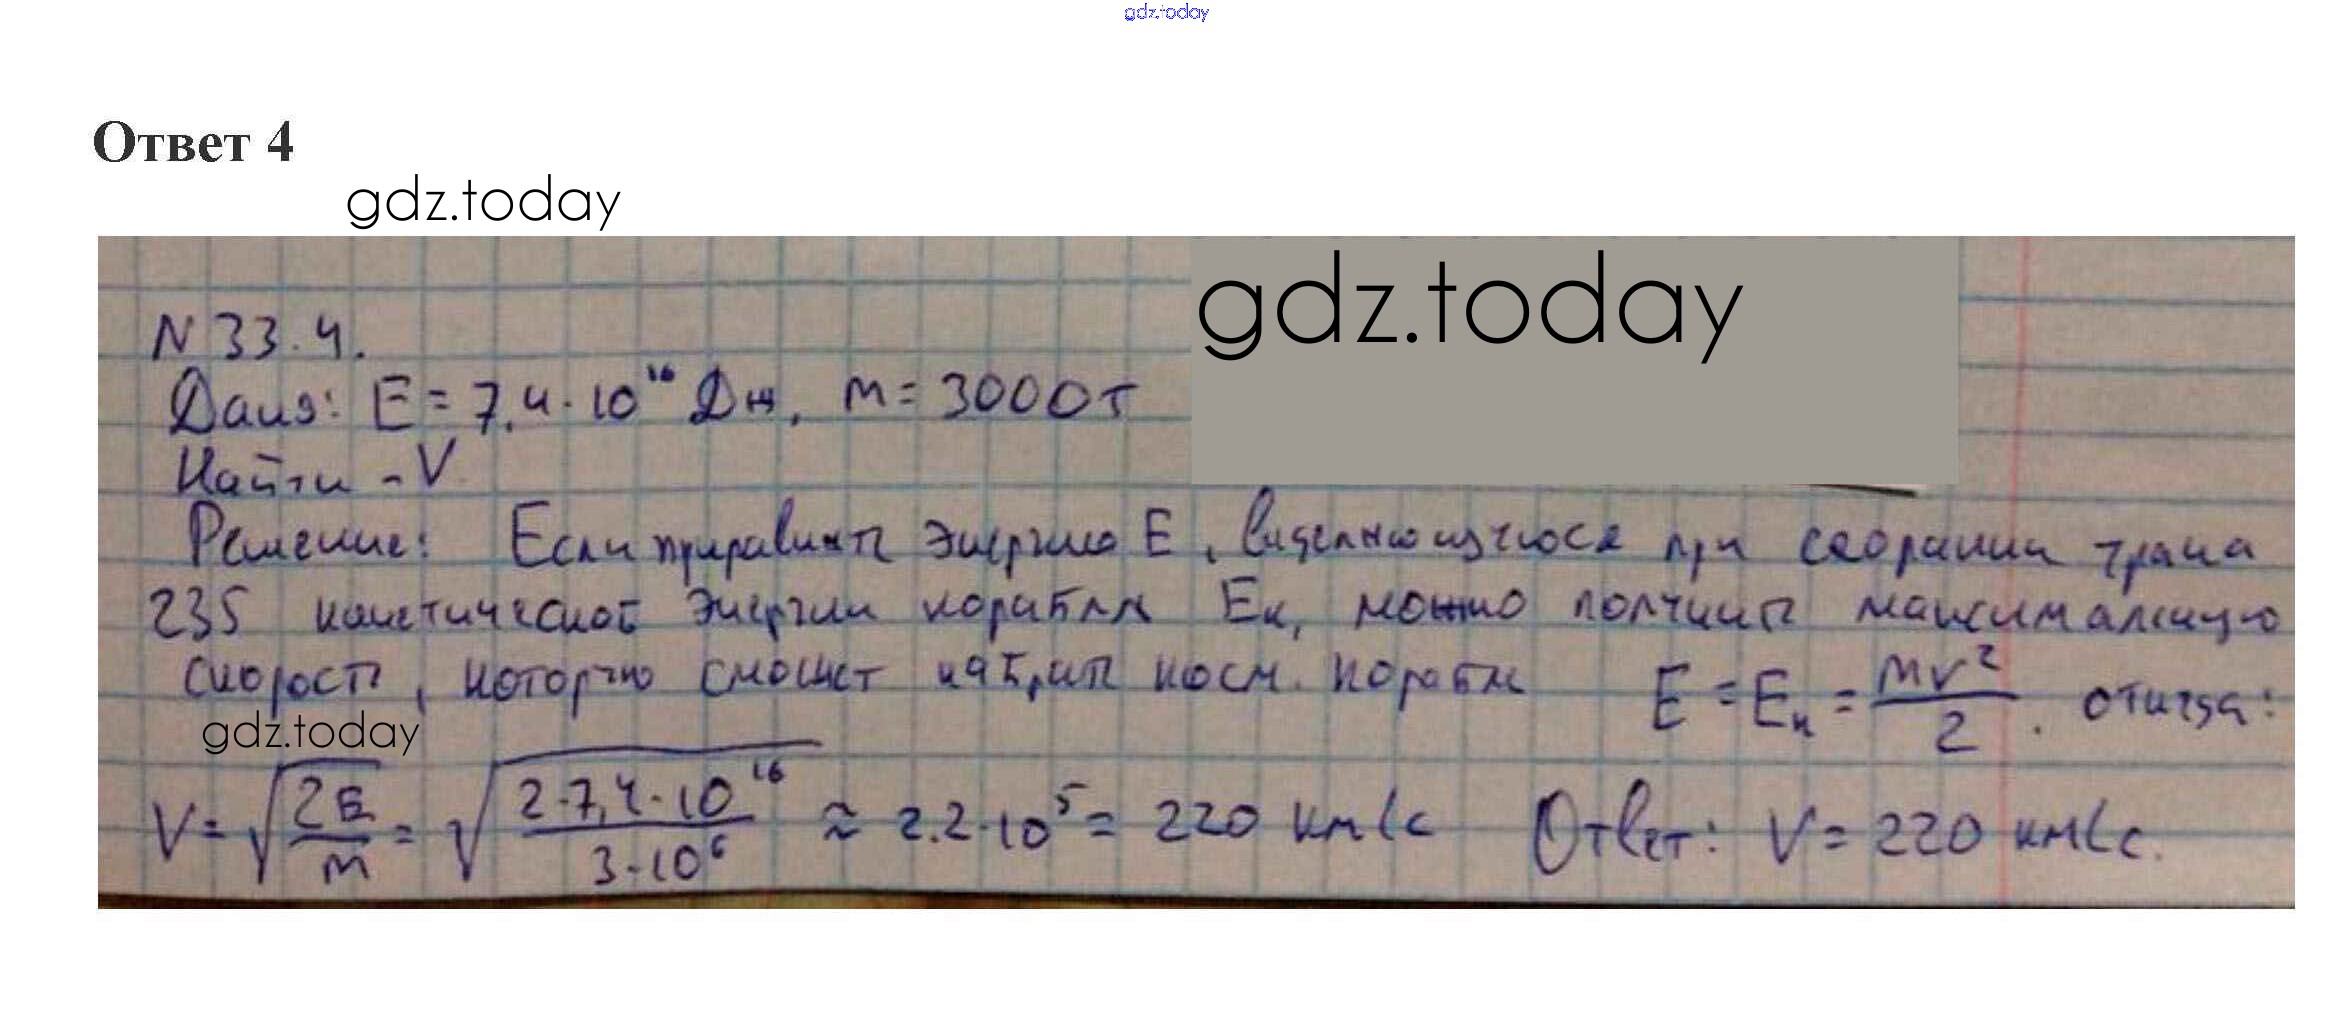 gdz.today
Ответ 4
gdz.today
gdz.today
N 33.4.
Дано: E = 7,4 · 10¹⁶ Дж, m = 3000 т
Найти - V
Решение: Если приравнять энергию E, выделяющуюся при сгорании урана
235 кинетической энергии корабля Eк, можно получить максимальную
скорость, которую сможет набрать косм. корабль E = Eк = mv²/2. откуда:
gdz.today
V = √(2E/m) = √(2·7,4·10¹⁶/3·10⁶) ≈ 2.2·10⁵ = 220 км/с Ответ: V = 220 км/с.